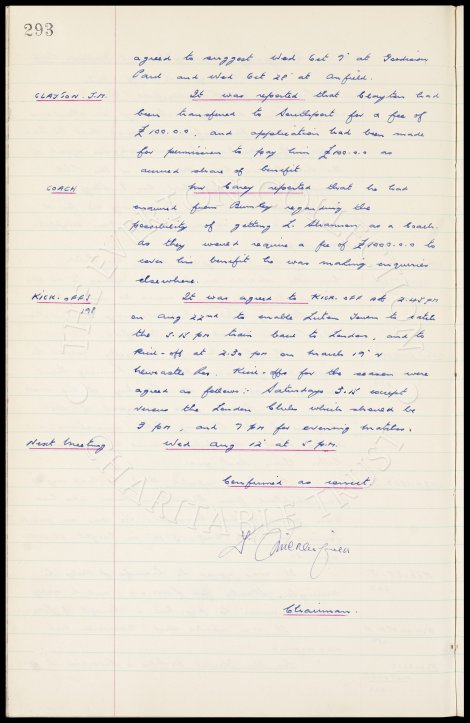 293
agreed to suggest Wed Oct 7th at Goodison
Park and Wed Oct 28th at Anfield.
CLAYTON. J.M. It was reported that Clayton had
been transferred to Southport for a fee of
£100.0.0. and application had been made
for permission to pay him £100.0.0 as
accrued share of benefit
COACH Mr Carey reported that he had
enquired from Burnley regarding the
possibility of getting L. Shannon as a Coach.
As they would require a fee of £1000.0.0 to
cover his benefit he was making enquiries
elsewhere.
KICK-OFFS It was agreed to KICK-OFF At 2.45 PM
on Aug 22nd to enable Luton Town to catch
the 5.15 pm train back to London, and to
Kick-off at 2.30 pm on March 19th v
Newcastle Res. Kick-offs for the season were
agreed as follows: Saturdays 3.15 except
versus the London Clubs which should be
3 pm, and 7 PM for evening matches.
Next Meeting Wed Aug 12th at 5 P.M.
Confirmed as correct.
Chairman.
THE EVERTON COLLECTION CHARITABLE TRUST